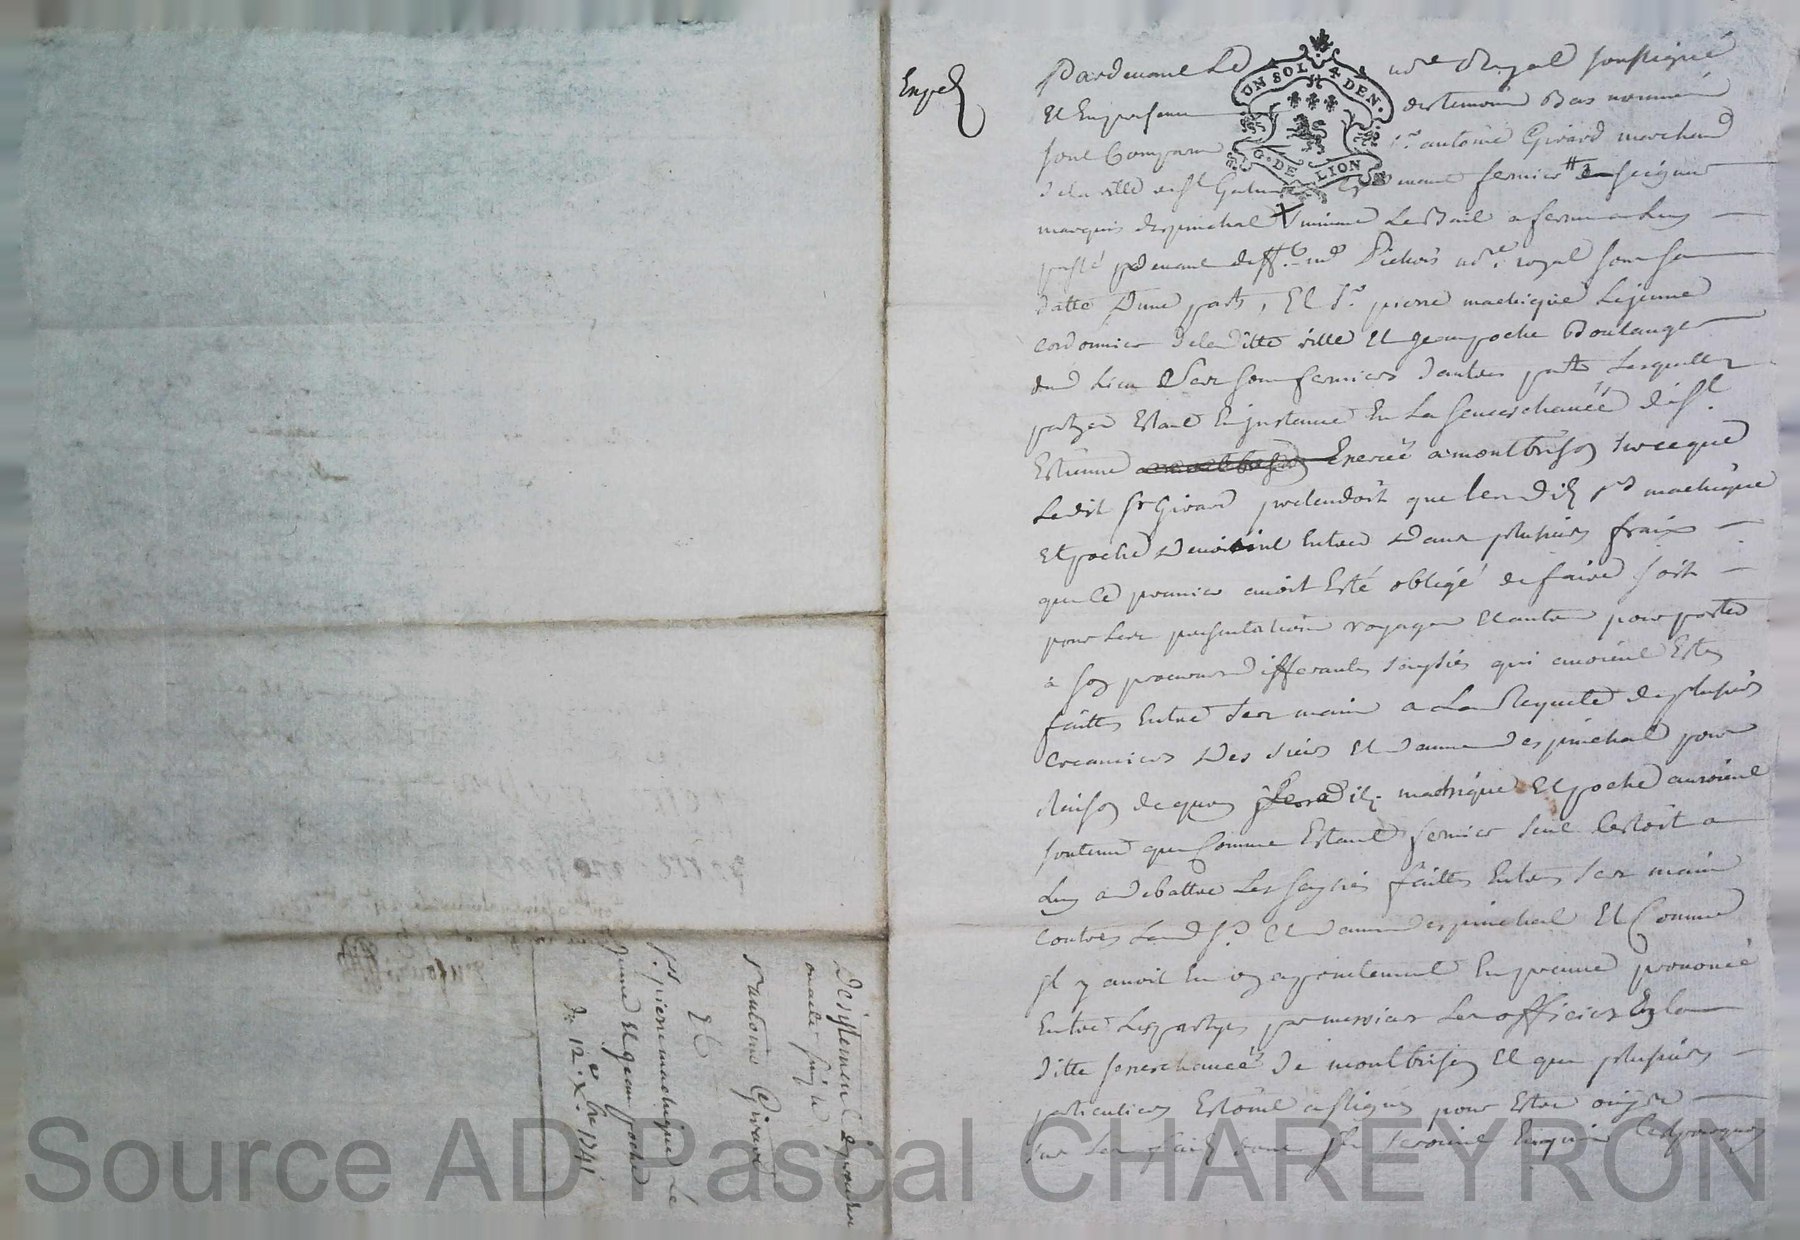 Exped
Pardevant Le no.re Royal soussigné
UN SOL 4 DEN.
G. DE LION
Et En presence des temoins Bas nommés
sont Comparu s.r antoine Girard marchand
de la ville de s.t Galmier fermier seigneur
marquis despinchal suivant Le Bail a ferme a Luy
passé pdevant deff.t m.e Pichois no.re royal sous sa
datte D'une part, Et S.r pierre machique Lejeune
cordonnier deladitte ville Et Jean poche Boulanger
dud Lieu Ses sousfermiers d'autre part Lesquelles
partyes Estant En instance En La Seneschaucée de s.t
Estienne Exercée a montbrison Sur ceque
Ledit sr Girard pretendoit que lesdits s.rs machique
Et poche Devoient Entrer Dans plusieurs frais
que Le premier avoit Esté obligé de faire soit
pour Les presentations voyages Et autres pour porter
a son procureur differantes saysies qui avoient Esté
faittes Entre ses mains a La Requete de plusieurs
Creanciers Des sieur Et dame despinchal pour
Raison de quoy Lesdits machique Et poche auroient
soutenu que Comme Estant fermier seul C'estoit a
Luy a Debattre Les saysies faittes Entre ses mains
contre Led s.r Et dame despinchal Et Comme
Il y avoit Eu un apointement En preuve prononcé
Entre Les partyes par messieurs Les officiers En la
ditte seneschaucée de montbrison Et que plusieurs
particuliers Estoient assignés pour Estre ouys
sur Les faits dont
Desistement
s.r antoine Girard
Et
s.r pierre machique Le
Jeune Et Jean poche
du 12.e X.bre 1741
Source AD Pascal CHAREYRON